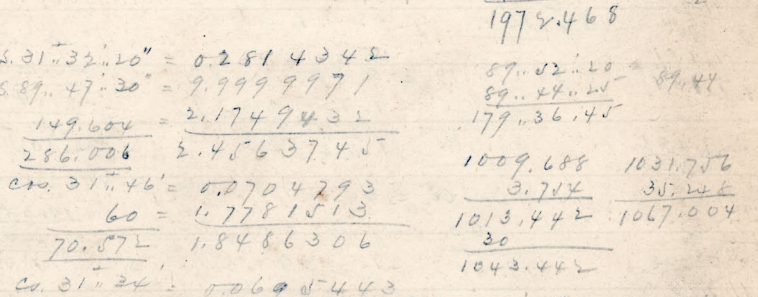 S. 31..32'..20" = 0.2814342
S 89..47'..30" = 9.9999971
149.604 = 2.1749432
286.006 2.4563745
cos. 31..46' = 0.0704793
60 = 1.7781513
70.572 1.8486306
cs. 31..34' = 0.0695443
1972.468
89..52..20
89..44..25
179..36.45
89..44
1009.688
3.754
1013.442
30
1043.442
1031.756
35.248
1067.004